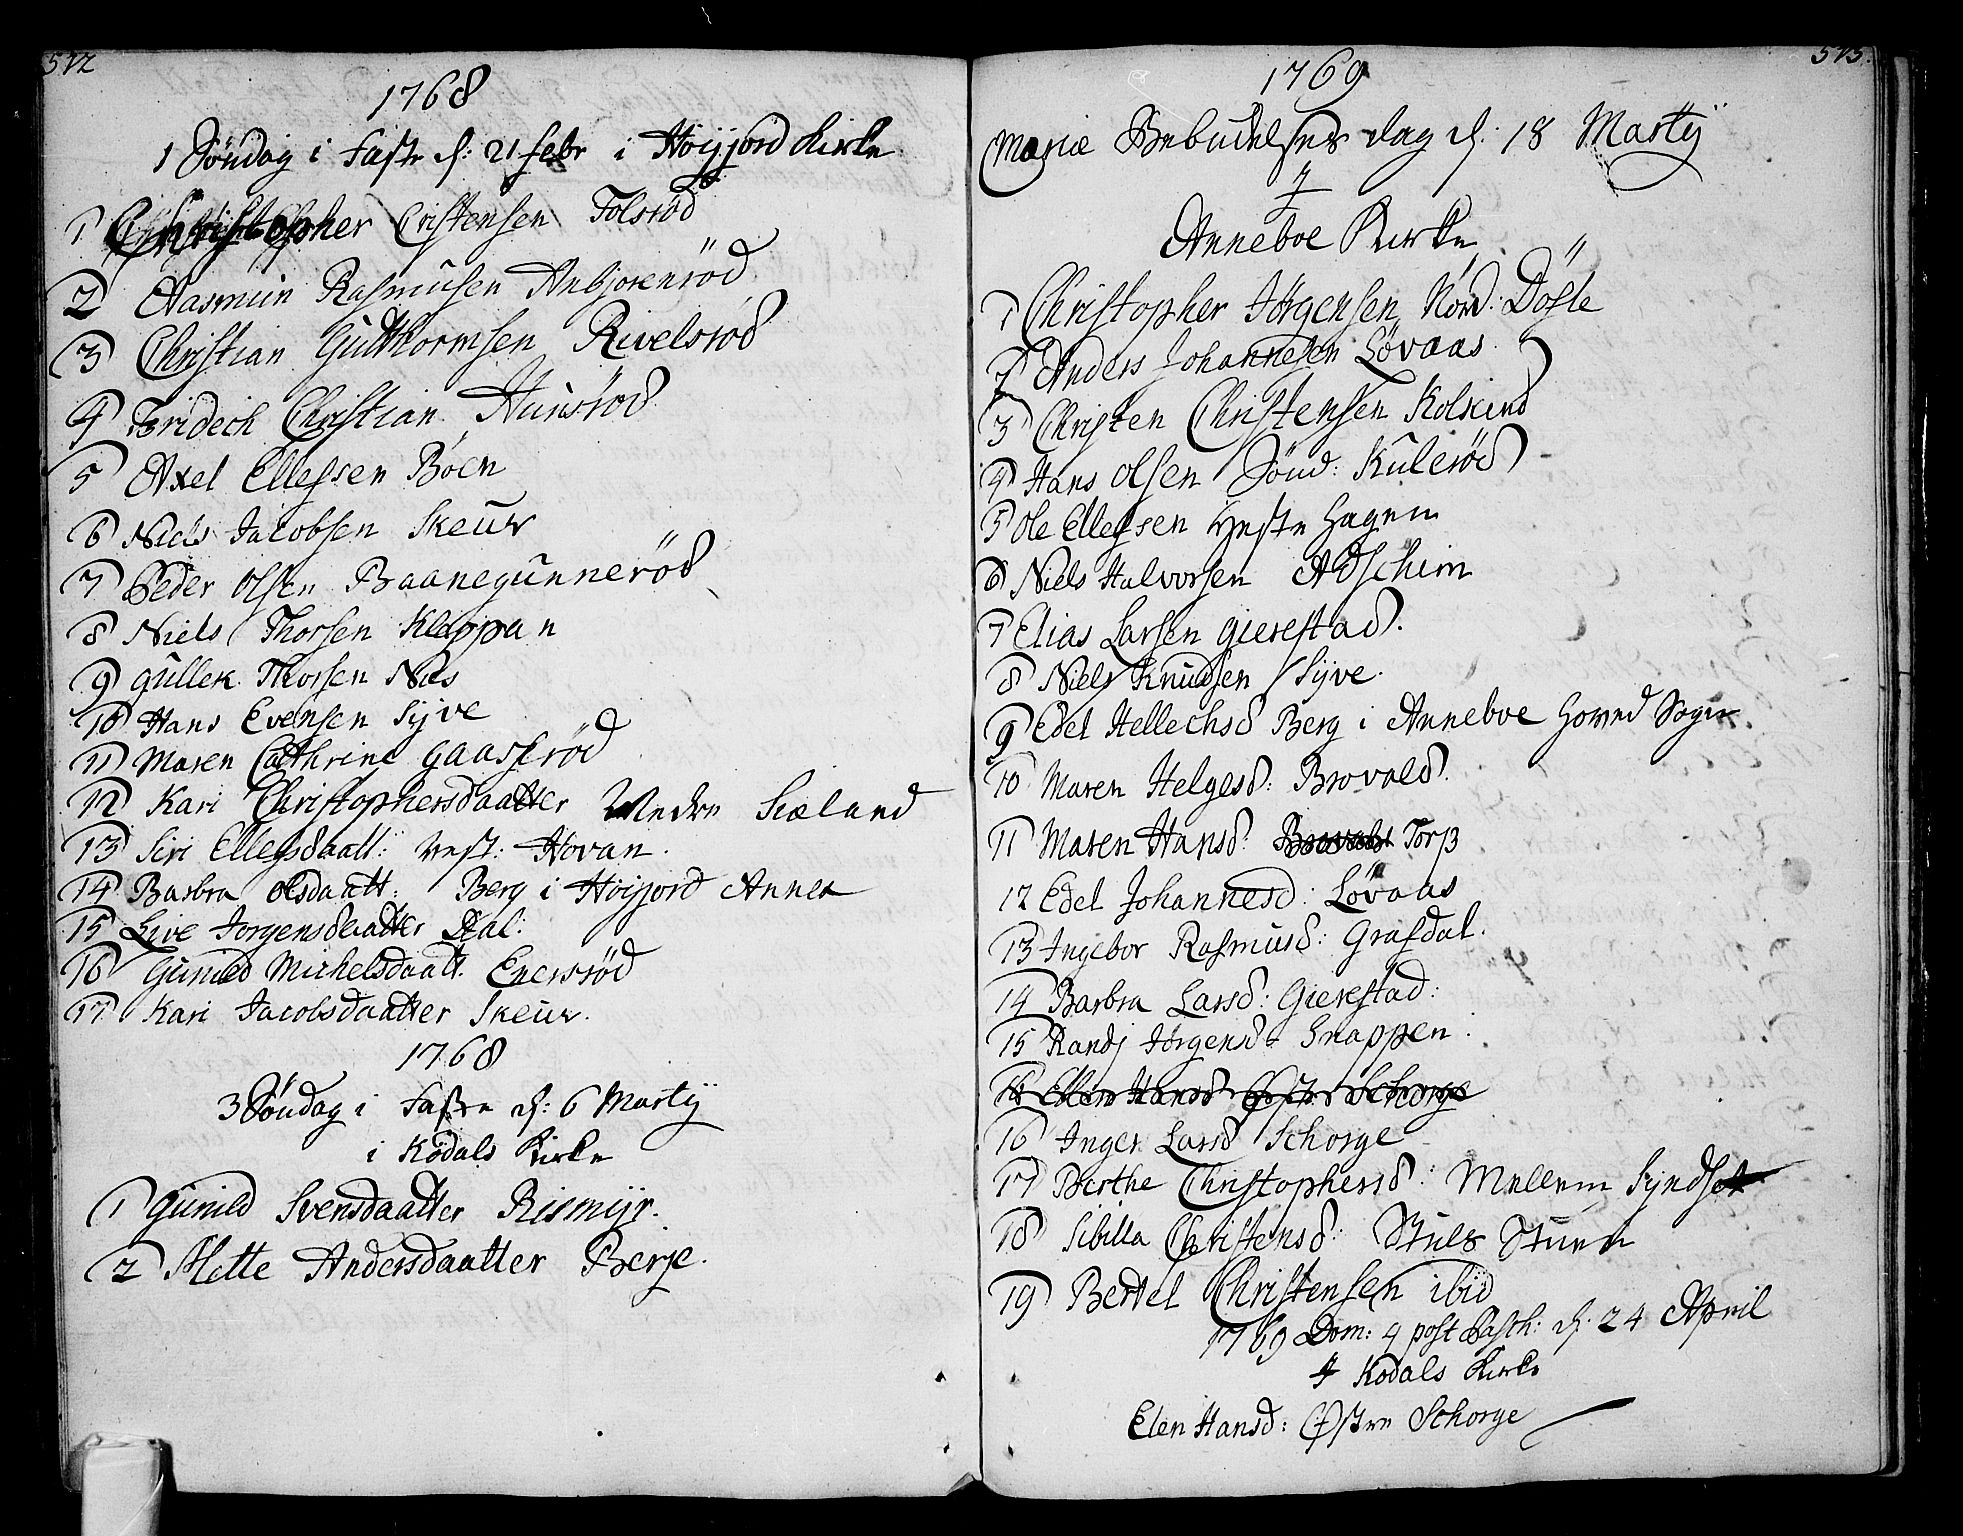 572
1768
1 Søndag i Faste d: 21 Febr i Høijjord Kirke
1 Christopher Cristensen Tolsrød
2 Aasmun Rasmusen Anbjørnrød
3 Christian Gudthormsen Rivelsrød
4 Fridech Christian Hunsrød
5 Axel Ellefsen Bøen
6 Niels Jacobsen Skeur
7 Peder Olsen Baanegunnerød
8 Niels Thorsen Kleppan
9 Gullek Thorsen Nes
10 Hans Evensen Syve
11 Maren Cathrine Gaasrød
12 Kari Christophersdaatter Nedre Sæland
13 Siri Ellefsdaatt: Vest: Hovan.
14 Barbra Olsdaatt: Berg i Høijjord Annex
15 Live Jørgensdaatter Dal:
16 Guniled Michelsdaatt. Enersrød
17 Kari Jacobsdaatter Skeur.
1768
3 Søndag i Faste d: 6 Martij
i Kodals Kirke
1 Gunild Svensdaatter Rismyr.
2 Mette Andersdaatter Berje.
573.
1769
Mariæ Bebudelses dag d. 18 Martij
I
Anneboe Kirke
1 Christopher Jørgensen Nord: Døfle
2 Anders Johannesen Løvaas
3 Christen Christensen Kolkind
4 Hans Olsen Sønd: Kulerød
5 Ole Ellefsen Vestre Hagen
6 Niels Halvorsen Adschim
7 Elias Larsen Gierestad.
8 Niels Knudsen Syve.
9 Edel Hellechsd Berg i Anneboe Hoved Sogn
10 Maren Helgesd: Brovald.
11 Maren Hansd. Brovald Torp
12 Edel Johannesd: Løvaas
13 Ingebor Rasmusd: Grafdal.
14 Barbra Larsd: Gierestad:
15 Randj Jørgensd: Snappen:
16 Ellen Hansd Østre Schorge
16 Inger Larsd Schorge
17 Berthe Christophersd: Mellem Syndset
18 Sibilla Christensd: Stuen
19 Bertel Christensen ibid
1769 Dom: 4 post Pasch: d. 24 April
I Kodals Kirke
Elen Hansd: Østre Schorge